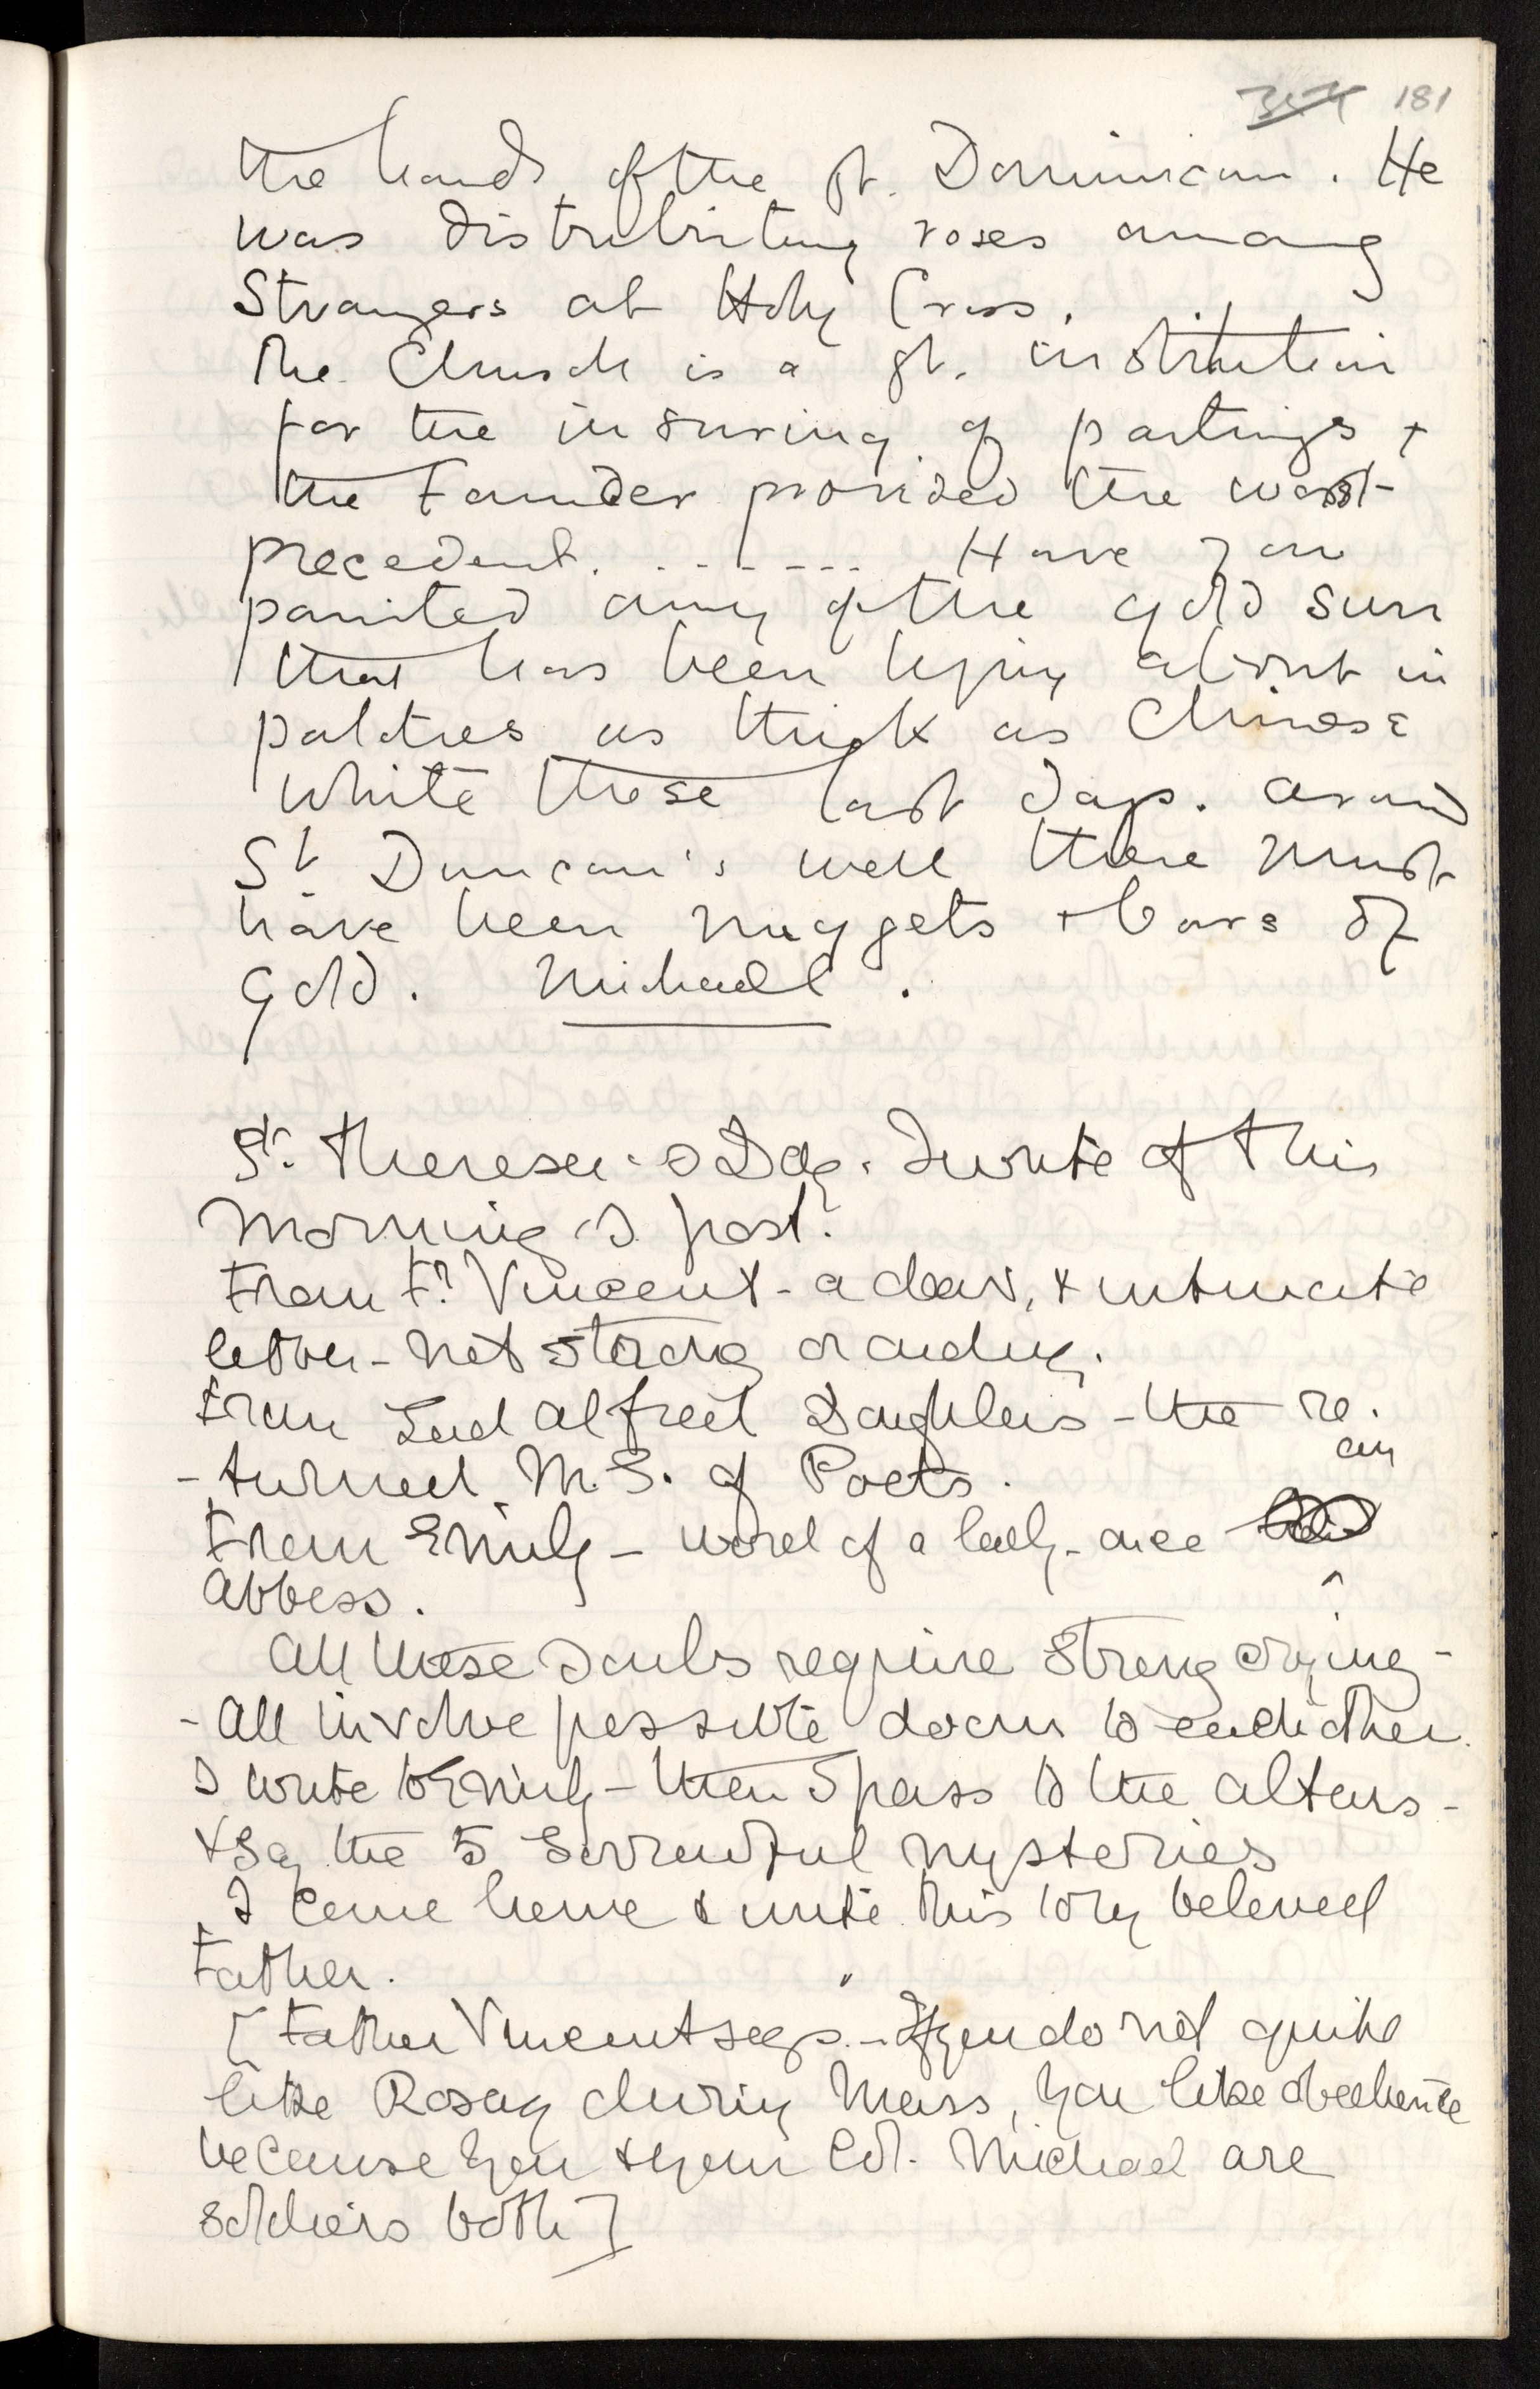 181
the hands of the gt. Dominican. He
was distributing roses among
Strangers at Holy Cross.
The Church is a gt. institution
for the insuring of partings +
the Founder provided the worst
precedent. . - - - - - - Have you
painted any of the gold sun
that has been lying about in
patches as thick as Chinese
White these last days. around
St Duncan's well there must
have been nuggets + bars of
gold. Michael.
St. Theresa's Day. I write of this
morning's post.
From Fr. Vincent - a dear, & intimate
letter - not strong
From Lord Alfred Douglas - the re.
- turned M.S. of Poets.
an
From Emily - word of a lady - once
Abbess.
All these souls require strong crying -
- All involve possible doom to each other.
I write to Emily - then I pass to the altars -
& say the 5 Sorrowful Mysteries
I come home & write this to my beloved
Father.
[Father Vincent says - If you do not quite
like Rosary during Mass, you like obedience
because you & your Col. Michael are
soldiers both]